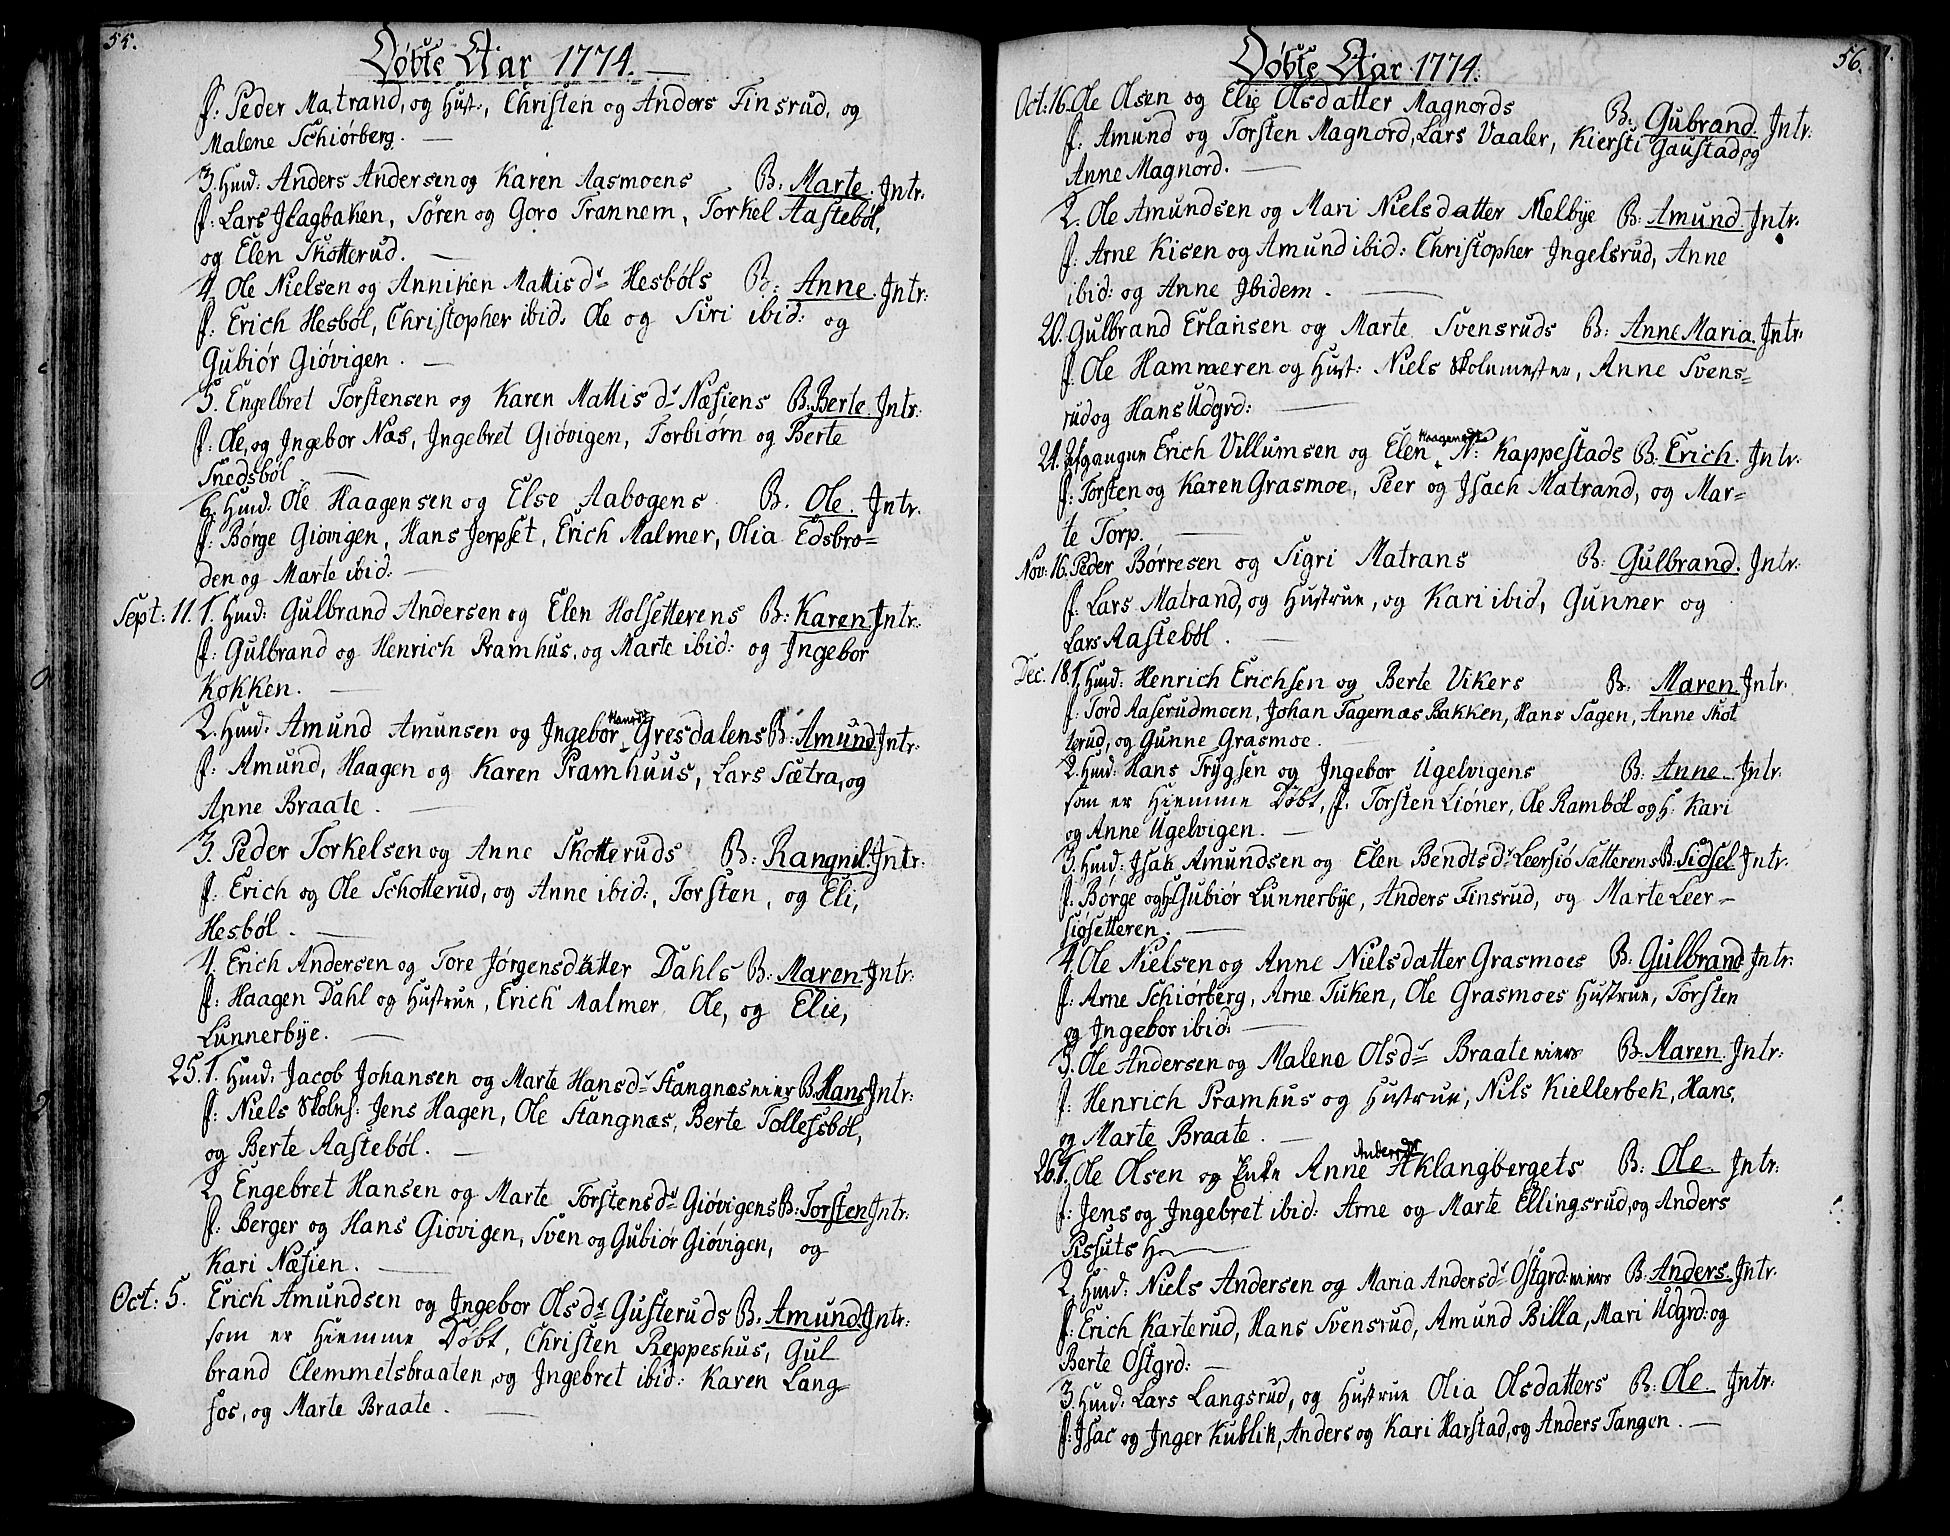 55.
Døbte Aar 1774.
f: Peder Matrand, og Hust:, Christen og Anders Finsrud, og
Malene Schiørberg.
3. Hmd: Anders Andersen og Karen Aasmoens B: Marte. Intr:
f: Lars Skagbaken, Søren og Goro Trannem, Torkel Aastebøl,
og Elen Skotterud.
4. Ole Nielsen og Anniken Mattis dr Hesbøls B: Anne. Intr:
f: Erich Hesbøl, Christopher ibid. Ole og Siri ibid: og
Gubiør Giøvigen.
5. Engelbret Torstensen og Karen Mattis dr Næsiens B: Berte. Intr:
f: Ole, og Ingebor Nas, Ingebret Giøvigen, Torbiørn og Berte
Snedsbøl
6. Hmd. Ole Haagensen og Else Aabogens B. Ole. Intr.
f: Børge Giøvigen, Hans Jerpset, Erich Malmer, Olia Edsbro=
den og Marte ibid:
Sept: 11. 1. Hmd: Gulbrand Andersen og Elen Holsetterens B: Karen. Intr:
f: Gulbrand og Henrich Pramhus, og Marte ibid: og Ingebor
Kokken.
2. Hmd: Amund Amunsen og Ingebor Hansdr Gresdalens B: Amund. Intr:
f: Amund, Haagen og Karen Pramhuus, Lars Sætra, og
Anne Braate.
3. Peder Torkelsen og Anne Skotteruds B: Rangnil. Intr:
f: Erich og Ole Schotterud, og Anne ibid:, Torsten, og Eli,
Hesbøl.
4. Erich Andersen og Tore Jørgensdatter Dahls B: Maren. Intr:
f: Haagen Dahl og Hustrue, Erich Malmer, Ole, og Elie,
Lunnerbye.
25. 1. Hmd: Jacob Johansen og Marte Hansdr Stangnæseier B: Hans Intr:
f: Niels Skolm: Jens Hagen, Ole Stangnæs, Berte Tollefsbøl,
og Berte Aastebøl.
2 Engebret Hansen og Marte Torstensdr Giøvigens B: Torsten Intr:
f: Berger og Hans Giøvigen, Sven og Gubiør Giøvigen, og
Kari Næsien.
Oct: 5. Erich Amundsen og Ingebor Olsdr Gusteruds B. Amund. Intr:
som er Hiemme Døbt, Christen Reppeshus, Gul
brand Clemmetsbraaten, og Ingebret ibid: Karen Lang=
fos, og Marte Braate.
56.
Døbte Aar 1774.
Oct: 16. Ole Olsen og Elie Olsdatter Magnords B. Gubrand. Intr:
f: Amund og Torsten Magnord, Lars Vaaler, Kiersti Gaustad, og
Anne Magnord.
2. Ole Amundsen og Mari Nielsdatter Melbye B: Amund. Intr:
f: Arne Kisen og Amund ibid: Christopher Ingelsrud, Anne
ibid: og Anne Ibidem.
20. Gulbrand Erlansen og Marte Svensruds B: Anne Maria. Intr:
f: Ole Hammeren og Hust: Niels Skolemester, Anne Svens=
rud og Hans Udgrd:
21. Afgangne Erich Villumsen og Elen Haagensdr N: Kappestads B. Erich. Intr.
f: Torsten og Karen Grasmoe, Peer og Isach Matrand, og Mar=
te Torp.
Nov: 16. Peder Børresen og Sigri Matrans B: Gulbrand. Intr:
f: Lars Matrand, og Hustrue, og Kari ibid, Gunner og
Lars Aastebøl.
Dec. 18. 1. Hmd: Henrich Erichsen og Berte Vikers B: Maren. Intr:
f: Tord Aaserudmoen, Johan Tagernæs Bakken, Hans Sagen, Anne Skot
terud, og Gunne Grasmoe.
2. Hmd: Hans Trygsen og Ingebor Ugelvigens B: Anne. Intr.
som er Hiemme Døbt, f. Torsten Liøner, Ole Rambøl og H. Kari
og Anne Ugelvigen.
3. Hmd: Isak Amundsen og Elen Bendtsdr Leersiø Sætterens B. Sidsel. Intr:
f: Børge og H: Gubiør Lunnerbye, Anders Finsrud, og Marte Leer=
siøsetteren.
4. Ole Nielsen og Anne Nielsdatter Grasmoes B: Gulbrand Intr:
f: Arne Schiørberg, Arne Tuken, Ole Grasmoes Hustrue, Torsten
og Ingebor ibid:
5. Ole Andersen og Malene Olsdr Braateeiers B. Maren. Intr:
f: Henrich Pramhus og Hustrue, Nils Kiellerbek, Hans,
og Marte Braate.
26. 1. Ole Olsen og Enke Anne Andersdr Aklangbergets B: Ole. Intr:
f: Jens og Ingebret ibid: Arne og Marte Ellingsrud, og Anders
Pissuts H
2. Hmd: Niels Andersen og Maria Andersdr Østgrd:eiers B: Anders. Intr:
f: Erich Karterud, Hans Svensrud, Amund Billa, Mari Udgrd: og
Berte Østgrd:
3. Hmd: Lars Langsrud, og Hustrue Olia Olsdatters B: Ole. Intr:
f: Isac og Inger Kublik, Anders og Kari Harstad, og Anders Tangen.